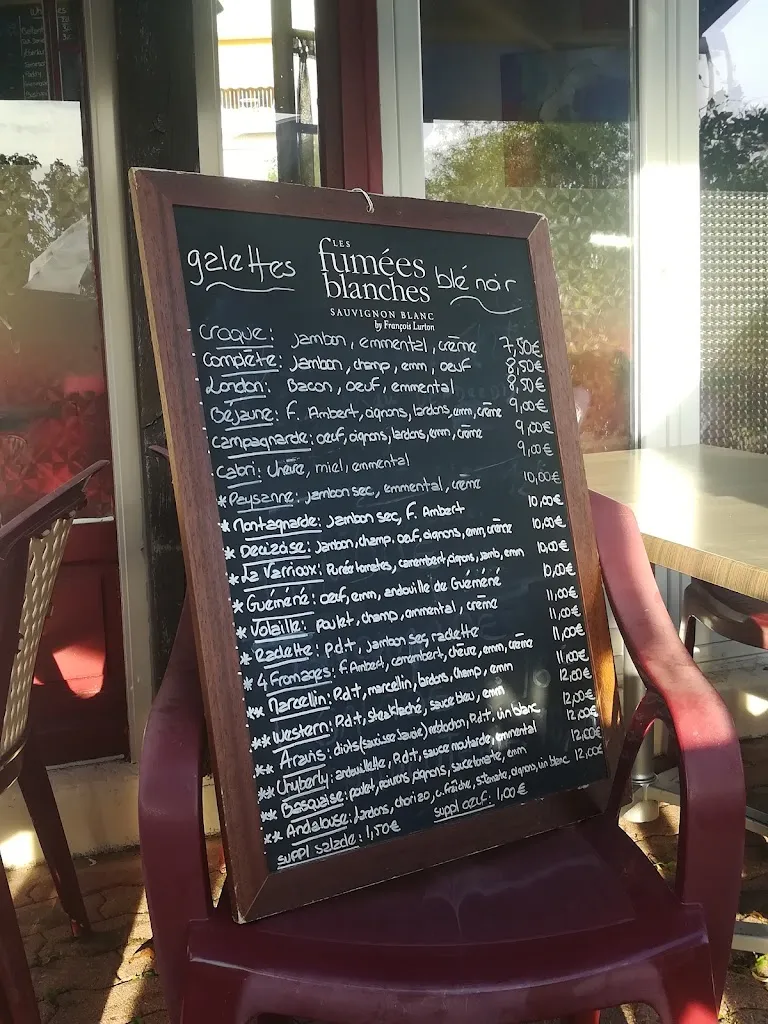 galettes
LES
fumées
blanches
SAUVIGNON BLANC
by François Lurton
blé noir
Croque: Jambon, emmental, crème 7,50€
Complète: Jambon, champ, emm, oeuf 8,50€
London: Bacon, oeuf, emmental 8,50€
Béjaune: F. Ambert, oignons, lardons, emm, crème 9,00€
Campagnarde: oeuf, oignons, lardons, emm, crème 9,00€
Cabri: chèvre, miel, emmental 9,00€
*Paysanne: jambon sec, emmental, crème 10,00€
*Montagnarde: Jambon sec, F. Ambert 10,00€
*Decizoise: Jambon, champ, oeuf, oignons, emm, crème 10,00€
*La Varrioux: Purée tomates, camembert, oignons, jamb, emm 10,00€
*Guéméné: oeuf, emm, andouille de Guéméné 10,00€
*Volaille: Poulet, champ, emmental, crème 11,00€
*Raclette: P.d.t, jambon sec, raclette 11,00€
*4 Fromages: F. Ambert, camembert, chèvre, emm, crème 11,00€
**Marcellin: P.d.t, marcellin, lardons, champ, emm 11,00€
**Western: P.d.t, steak haché, sauce bleu, emm 12,00€
**Aravis: diots (saucisse Savoie) reblochon, P.d.t, vin blanc 12,00€
**Chyberly: andouillette, P.d.t, sauce moutarde, emmental 12,00€
**Basquaise: poulet, poivrons, oignons, sauce tomate, emm 12,00€
**Andalouse: lardons, chorizo, c. fraîche, s. tomate, oignons, vin blanc 12,00€
suppl salade: 1,50€ suppl oeuf: 1,00€